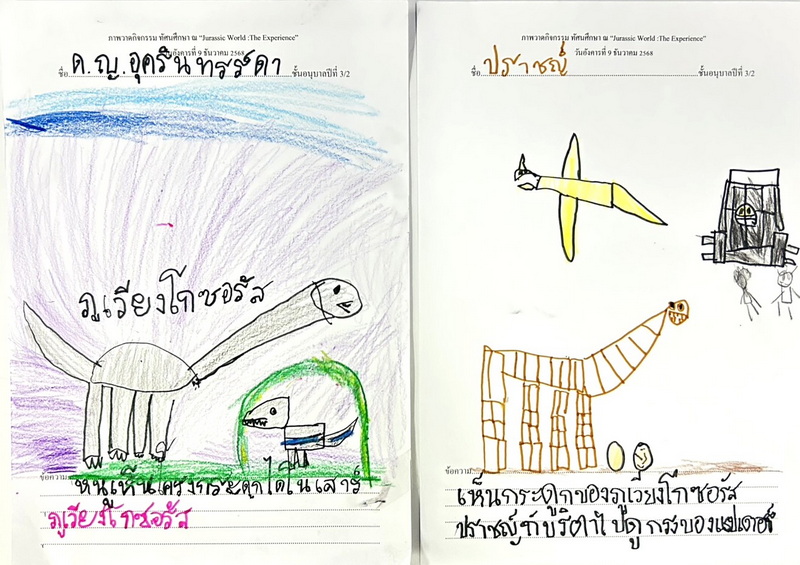 ภาพวาดกิจกรรม ทัศนศึกษา ณ "Jurassic World :The Experience"
วันอังคารที่ 9 ธันวาคม 2568
ชื่อ ด.ญ.อุครินทรรดา ชั้นอนุบาลปีที่ 3/2
ภูเวียงโกซอรัส
ข้อความ หนูเห็นโครงกระดูกไดโนเสาร์
ภูเวียงโกซอรัส
ภาพวาดกิจกรรม ทัศนศึกษา ณ "Jurassic World :The Experience"
วันอังคารที่ 9 ธันวาคม 2568
ชื่อ ปราชญ์ ชั้นอนุบาลปีที่ 3/2
ข้อความ
เห็นกระดูกของภูเวียงโกซอรัส
ปราชญ์กับริตาไปดู